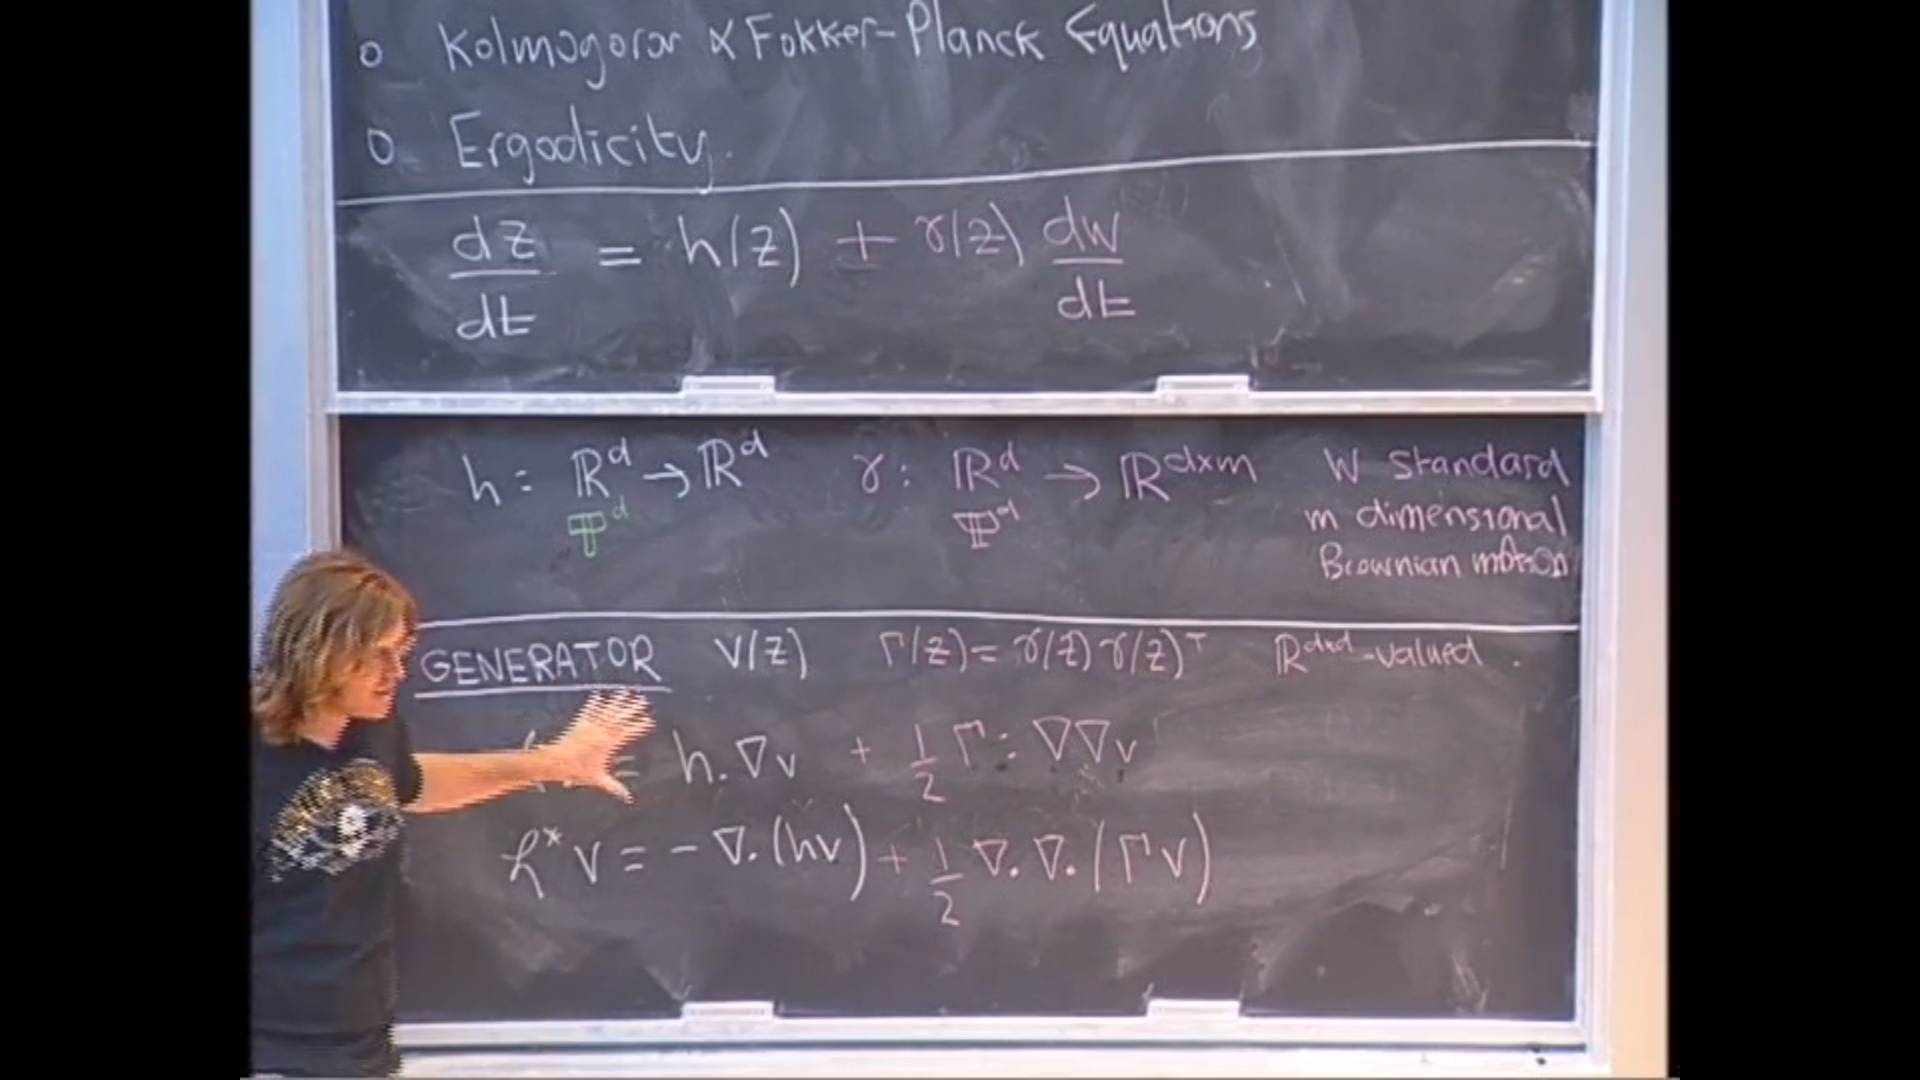 o Kolmogorov & Fokker-Planck Equations
o Ergodicity.
dz/dt = h(z) + γ(z) dW/dt
h: ℝᵈ → ℝᵈ γ: ℝᵈ → ℝᵈˣᵐ W Standard
𝕋ᵈ 𝕋ᵈ m dimensional
Brownian motion
GENERATOR v(z) Γ(z) = γ(z) γ(z)ᵀ ℝᵈˣᵈ-valued.
= h.∇v + 1/2 Γ : ∇∇v
ℒ*v = -∇.(hv) + 1/2 ∇.∇.(Γv)